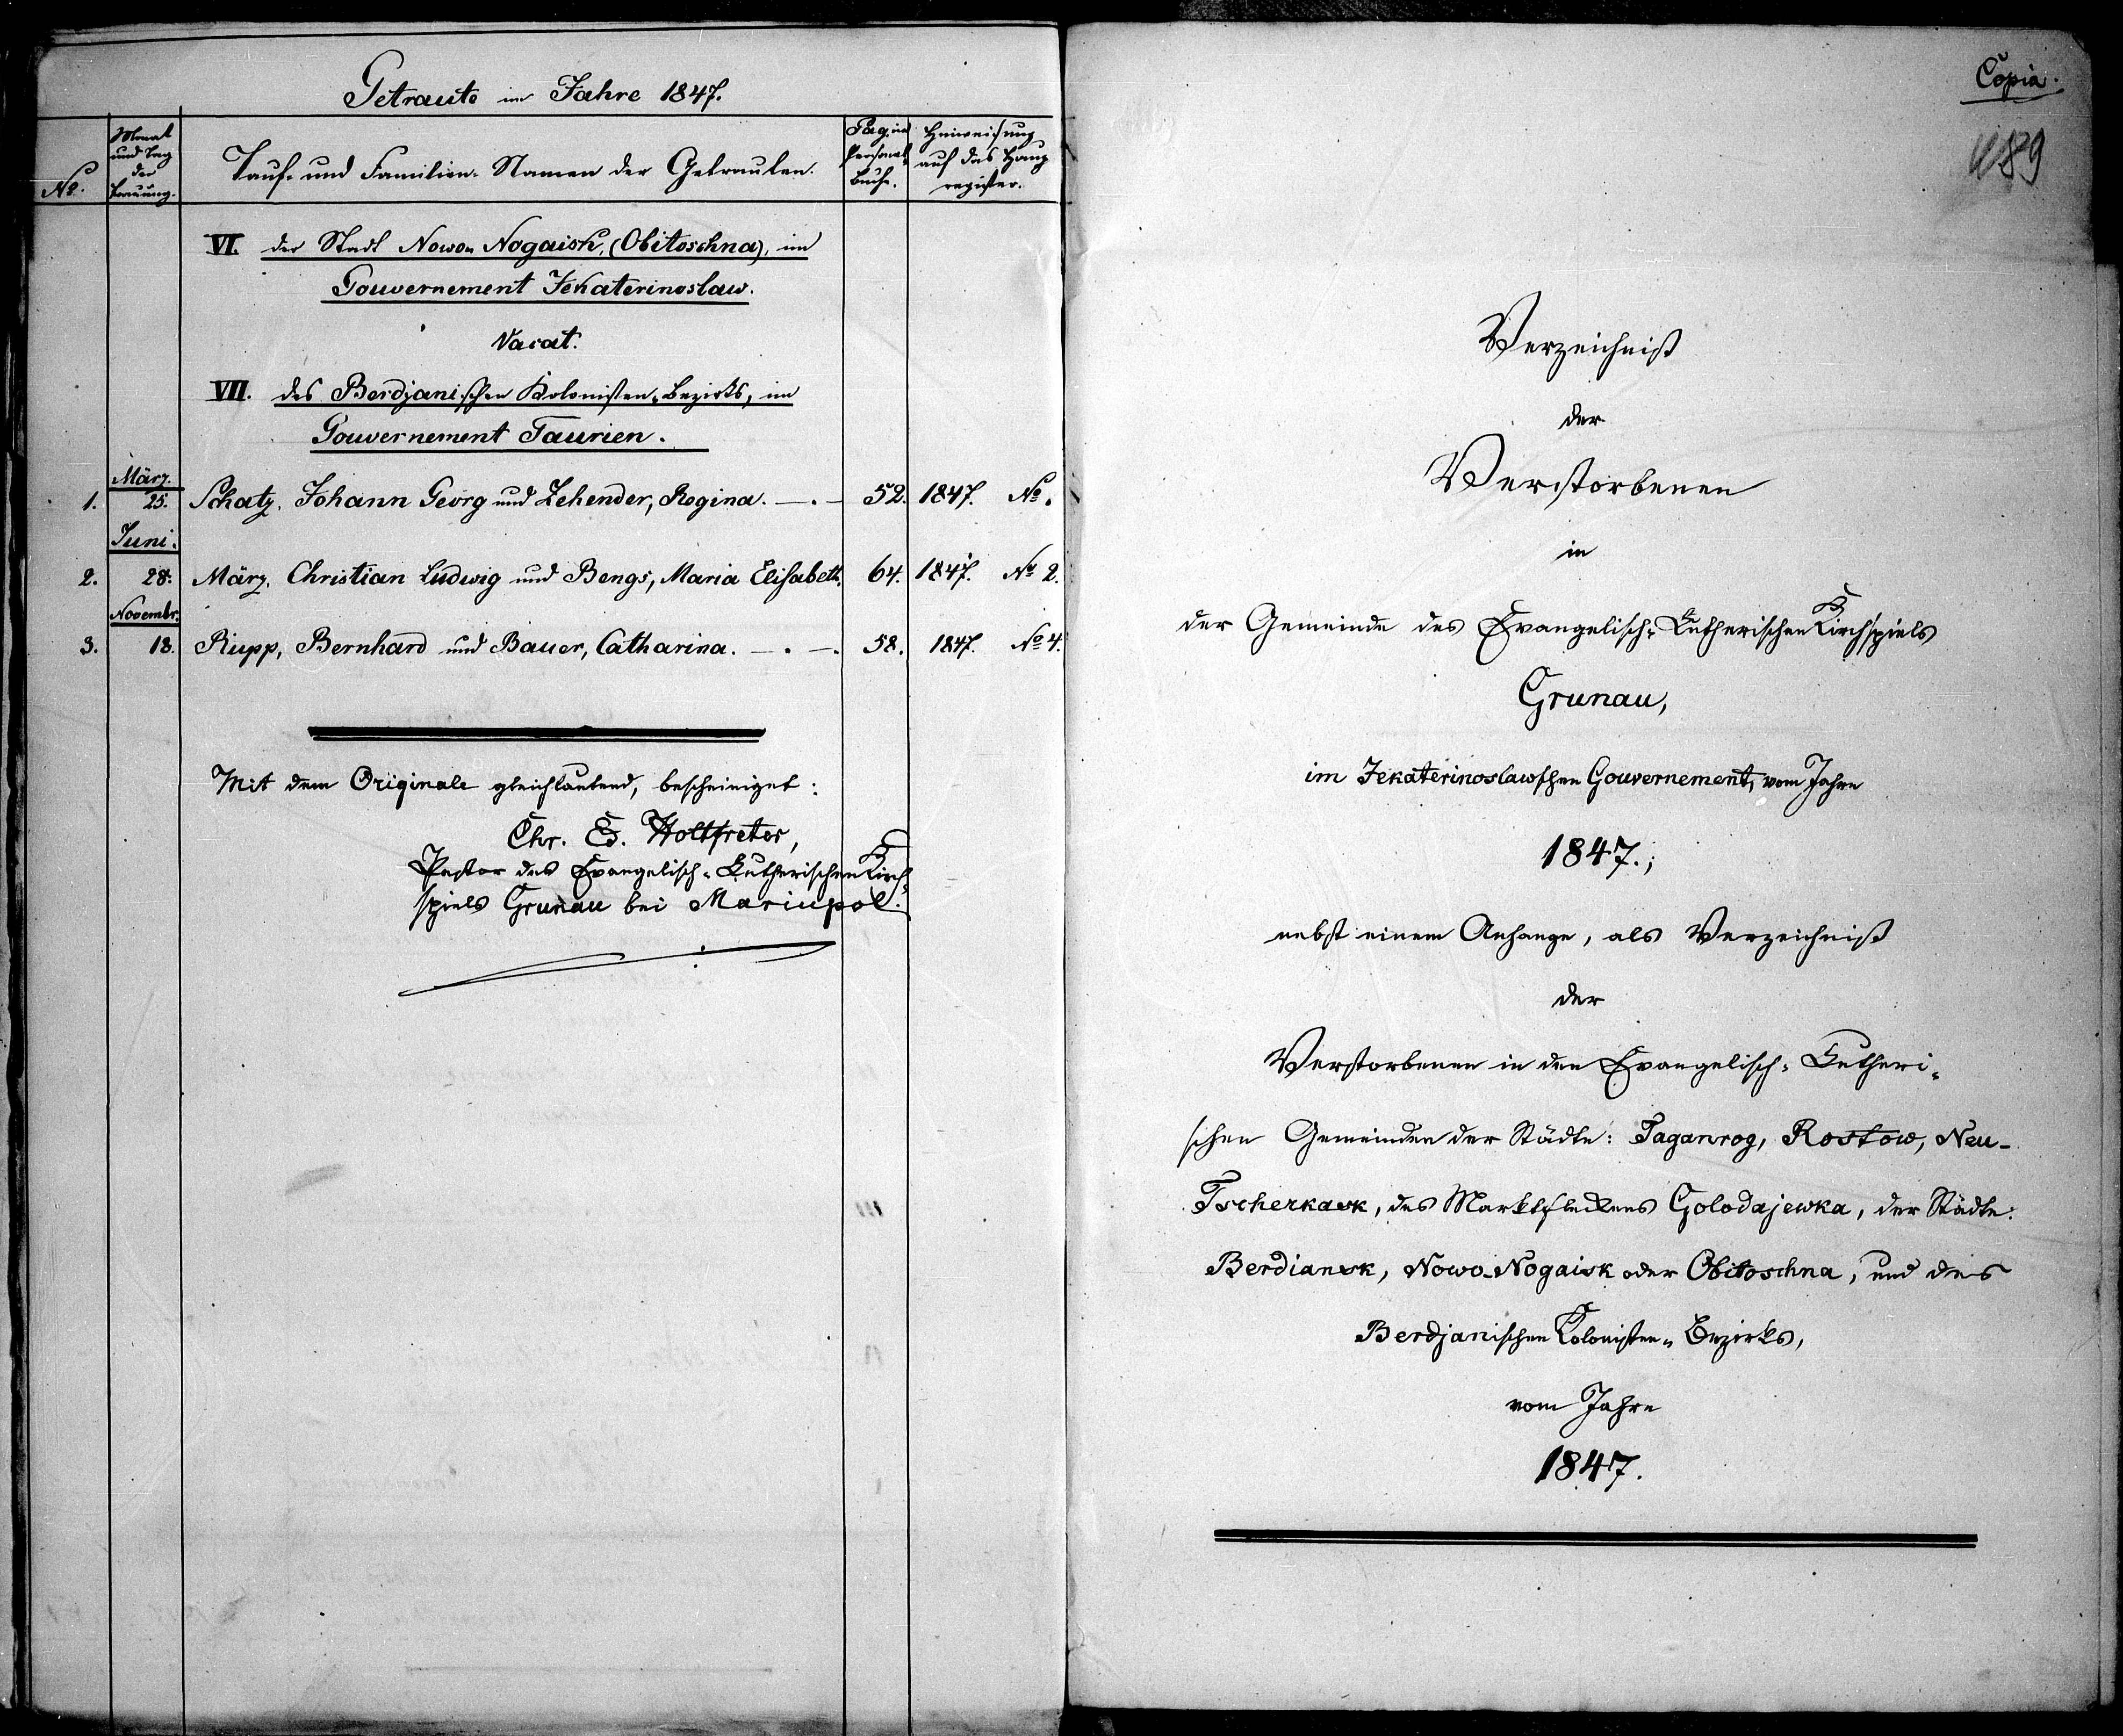 Getraute im Jahre 1847.
No.
Monat und Tag der Trauung.
Tauf- und Familien-Namen der Getrauten.
Pag. im Personal-Buche.
Hinweisung auf das Hauptregister.
VI. der Stadt Nowo-Nogaisk, (Obitoschna), im
Gouvernement Jekaterinoslaw.
Vacat.
VII. des Berdjanischen Kolonisten-Bezirks, im
Gouvernement Taurien.
März.
1. 25. Schatz, Johann Georg und Zehender, Regina. 52. 1847. No.
Juni.
2. 28. März, Christian Ludwig und Bengs, Maria Elisabeth. 64. 1847. No 2.
Novembr.
3. 18. Rupp, Bernhard und Bauer, Catharina. 58. 1847. No 4.
Mit dem Originale gleichlautend, bescheiniget:
Chr. Ed. Holtfreter,
Pastor des Evangelisch-Lutherischen Kirch-
spiels Grunau bei Mariupol.
Copia.
Verzeichniß
der
Verstorbenen
in
der Gemeinde des Evangelisch-Lutherischen Kirchspiels
Grunau,
im Jekaterinoslawschen Gouvernement, vom Jahre
1847.;
nebst einem Anhange, als Verzeichniß
der
Verstorbenen in den Evangelisch-Lutheri-
schen Gemeinden der Städte: Taganrog, Rostow, Neu-
Tscherkask, des Marktfleckens Golodajewka, der Städte:
Berdiansk, Nowo-Nogaisk oder Obitoschna, und des
Berdjanischen Kolonisten-Bezirks,
vom Jahre
1847.